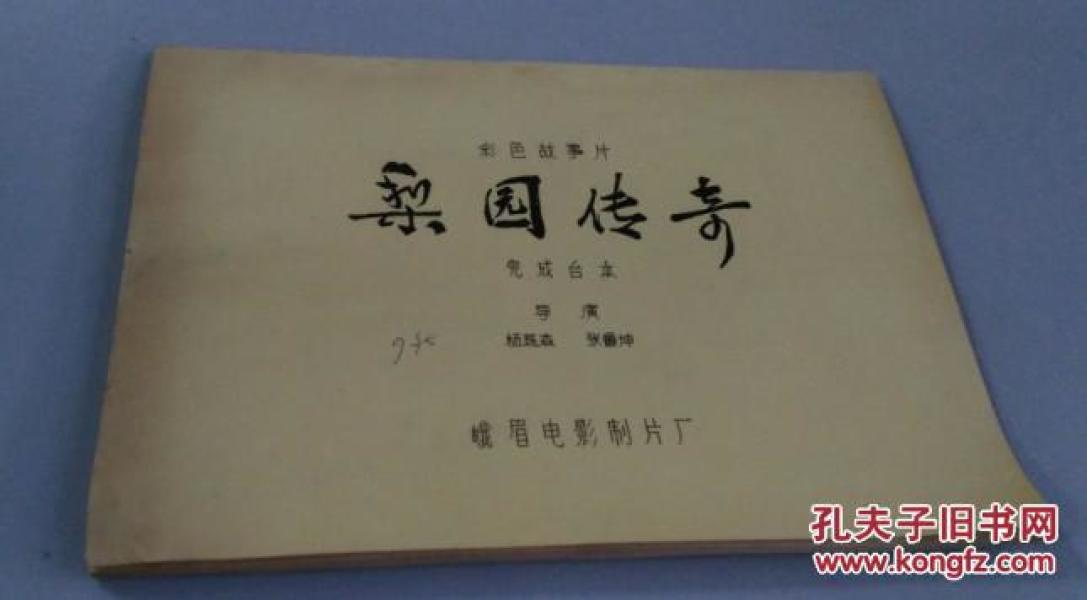 彩色故事片
梨园传奇
完成台本
导演
杨跃森 张鲁坤
峨眉电影制片厂
孔夫子旧书网
www.kongfz.com